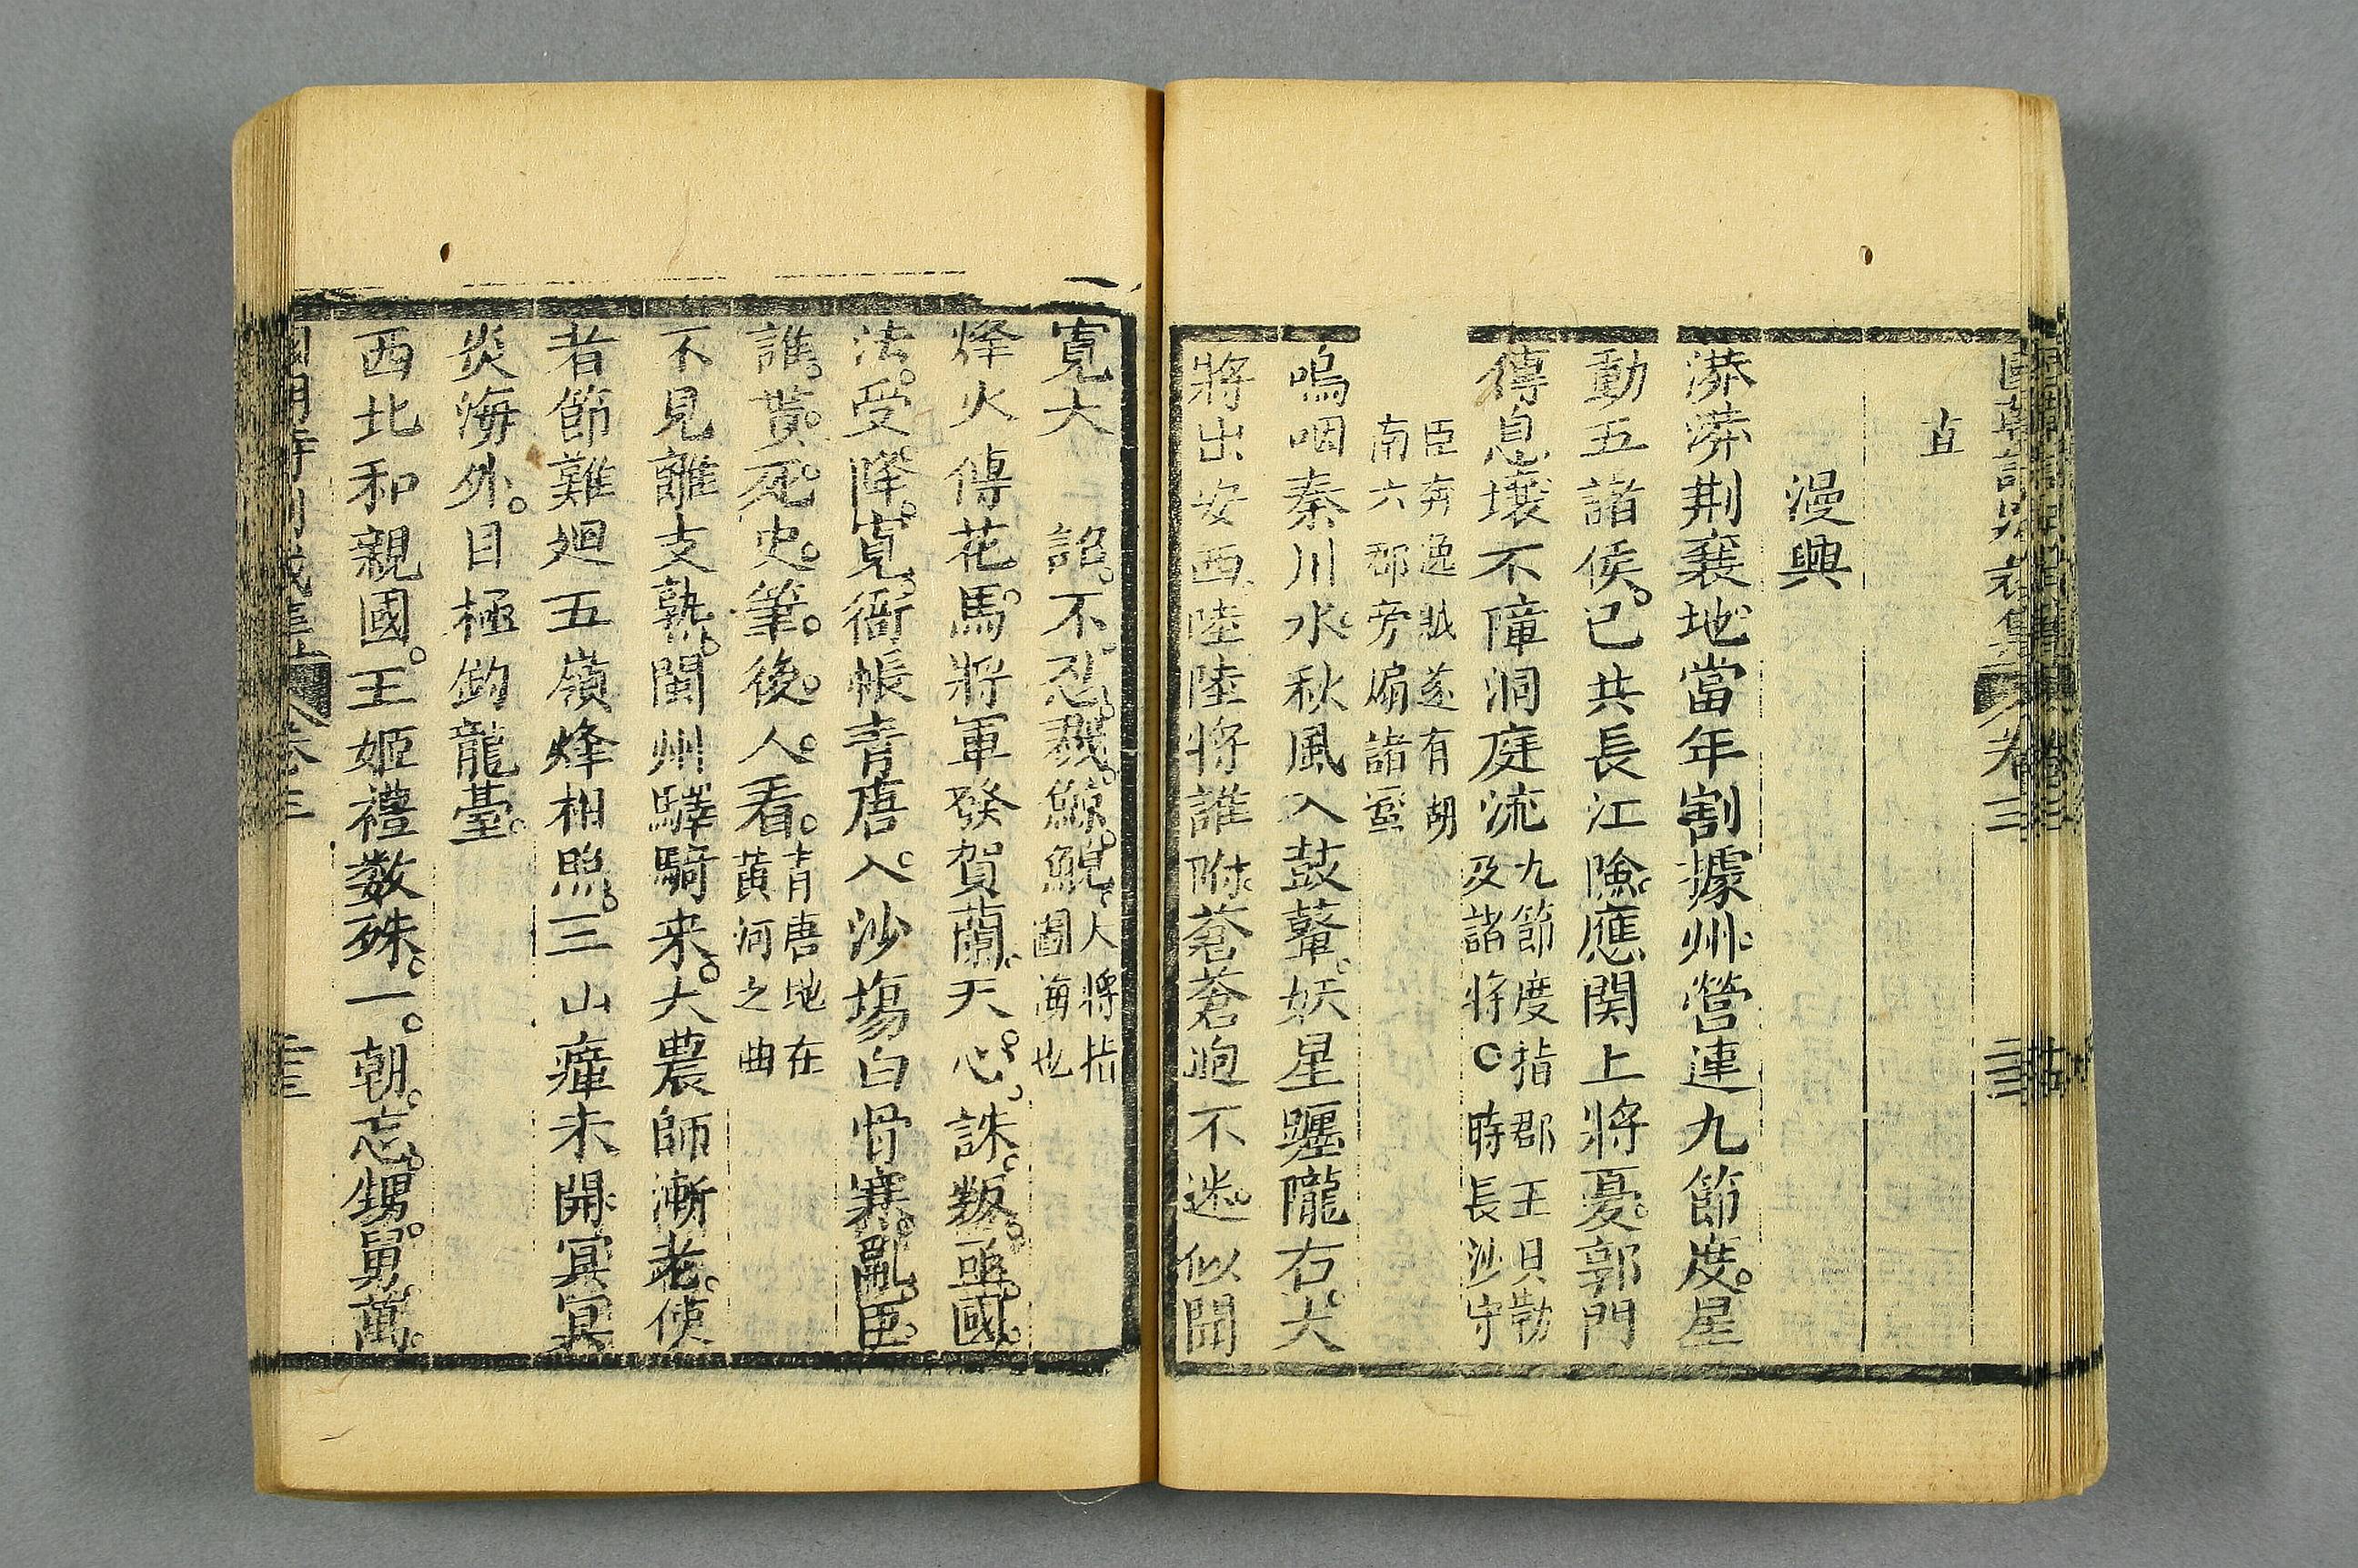 直
漫興
漭漭荆襄地當年割據州營連九節度星
動五諸侯已共長江險應関上將憂郭門
傳息壤不障洞庭流九節度指郡王貝勒
及諸將○時長沙守
臣奔逸賊遂有胡
南六郡旁煽諸蠻
嗚咽秦川水秋風入鼓鼙妖星躔隴右犬
將出安西陸陸將誰附蒼蒼洵不迷似聞
寬大詔不忍戮鯨鯢大將指
圖海也
烽火傳花馬將軍發賀蘭天心誅叛亟國
法受降寬衙帳青唐入沙塲白骨寒亂臣
誰貰死史筆後人看青唐地在
黃河之曲
不見離支熟閩州驛騎来大農師漸老使
者節難廻五嶺烽相照三山瘴未開冥冥
炎海外目極釣龍臺
西北和親國王姬禮数殊一朝忘甥舅萬
卷三